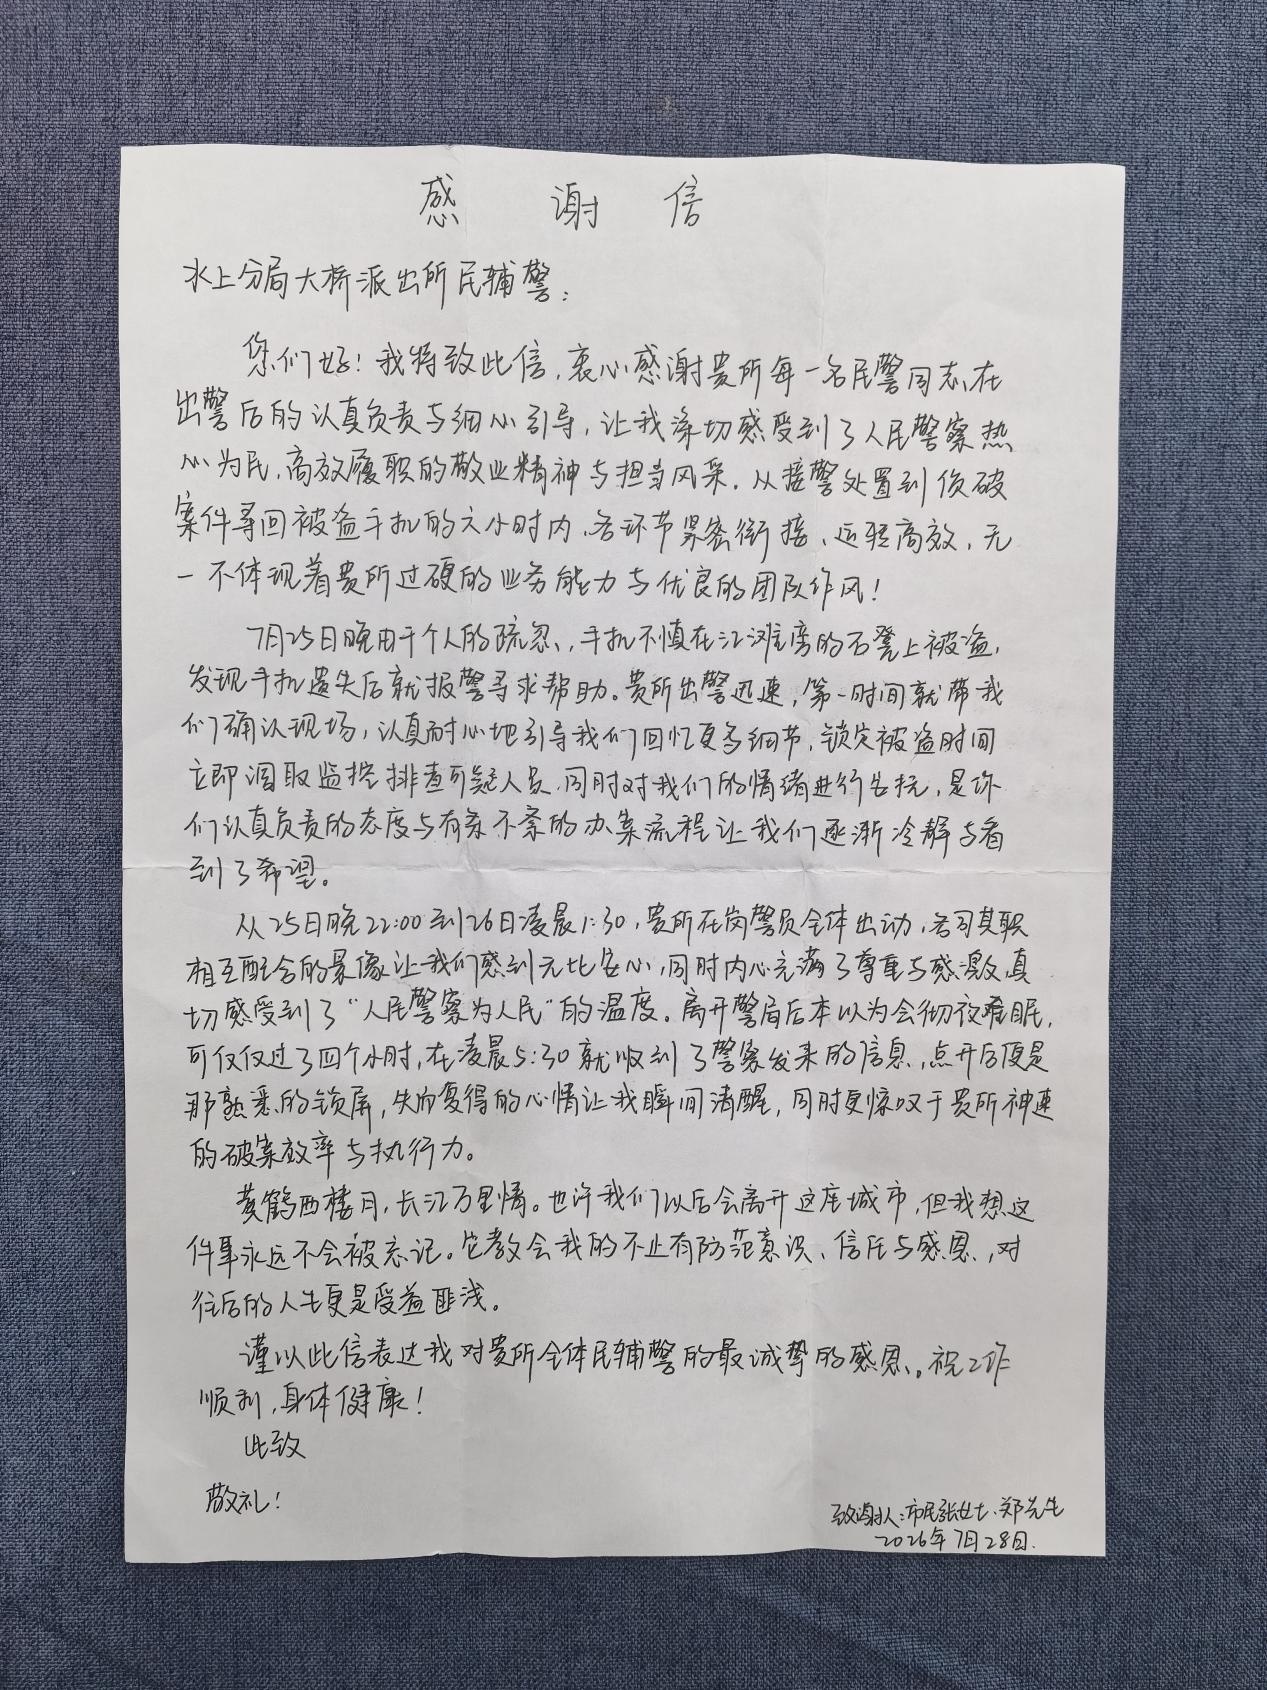 感 谢 信
水上分局大桥派出所民辅警：
您们好！我特致此信，衷心感谢贵所每一名民警同志、在
出警后的认真负责与细心引导，让我深切感受到了人民警察热
心为民，高效履职的敬业精神与担当风采。从接警处置到侦破
案件寻回被盗手机的六小时内，各环节紧密衔接、运转高效，无
一不体现着贵所过硬的业务能力与优良的团队作风！
7月25日晚由于个人的疏忽，手机不慎在江滩旁的石凳上被盗，
发现手机遗失后就报警寻求帮助。贵所出警迅速，第一时间就带我
们确认现场，认真耐心地引导我们回忆更多细节，锁定被盗时间
立即调取监控排查可疑人员，同时对我们的情绪进行安抚，是你
们认真负责的态度与有条不紊的办案流程让我们逐渐冷静与看
到了希望。
从25日晚22:00到26日凌晨1:30，贵所在岗警员全体出动，各司其职
相互配合的景像让我们感到无比安心，同时内心充满了尊重与感激，真
切感受到了“人民警察为人民”的温度。离开警局后本以为会彻夜难眠，
可仅仅过了四个小时，在凌晨5:30就收到了警察发来的信息，点开后便是
那熟悉的锁屏，失而复得的心情让我瞬间清醒，同时更惊叹于贵所神速
的破案效率与执行力。
黄鹤西楼月，长江万里情。也许我们以后会离开这座城市，但我想这
件事永远不会被忘记。它教会我的不止有防范意识、信任与感恩，对
往后的人生更是受益匪浅。
谨以此信表达我对贵所全体民辅警的最诚挚的感恩、。祝工作
顺利，身体健康！
此致
敬礼！
致谢人：市民张女士、郑先生
2026年7月28日.